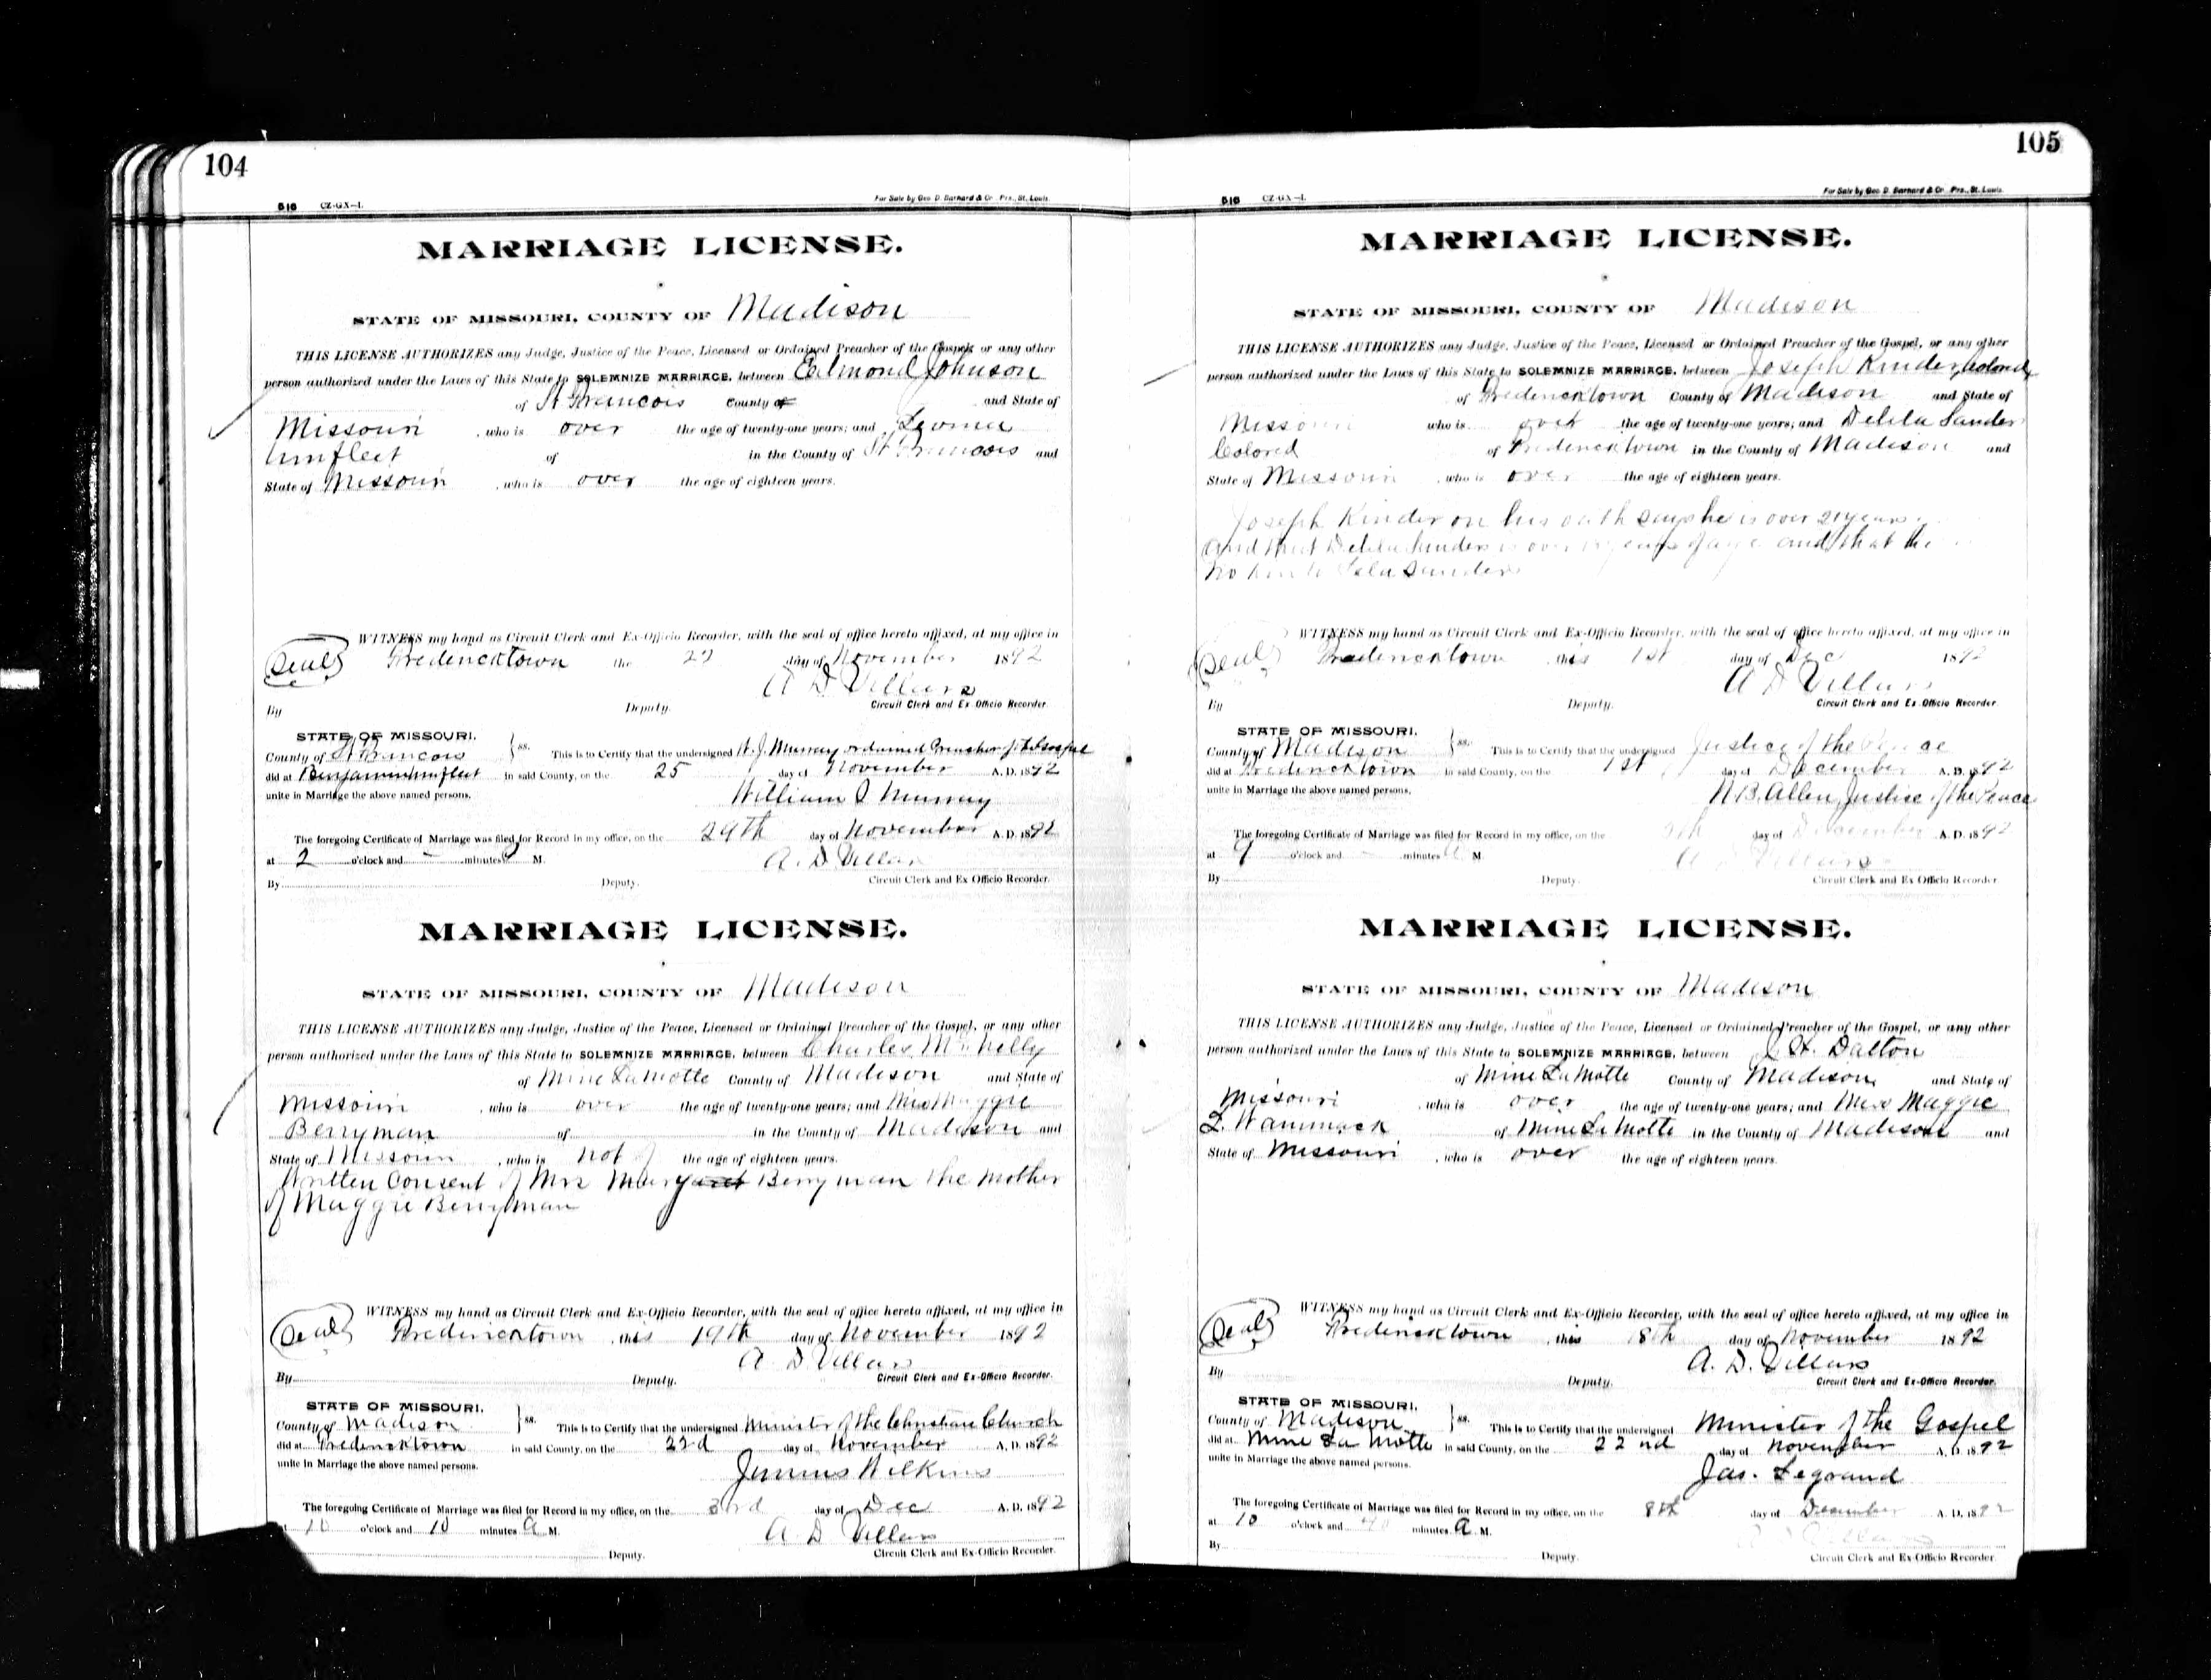 104
516 CZ-GX-L For Sale by Geo D. Barnard & Co. Prs., St. Louis.
MARRIAGE LICENSE.
STATE OF MISSOURI, COUNTY OF Madison
THIS LICENSE AUTHORIZES any Judge, Justice of the Peace, Licensed or Ordained Preacher of the Gospel, or any other
person authorized under the Laws of this State to SOLEMNIZE MARRIAGE, between Edmond Johnson
of St Francois County of and State of
Missouri, who is over the age of twenty-one years; and
Umfleet of in the County of St Francois and
State of Missouri, who is over the age of eighteen years.
WITNESS my hand as Circuit Clerk and Ex-Officio Recorder, with the seal of office hereto affixed, at my office in
(Seal) Fredericktown the 22 day of November 1892
A D Villars
By Deputy. Circuit Clerk and Ex-Officio Recorder.
STATE OF MISSOURI,
County of St Francois } ss. This is to Certify that the undersigned W. J. Murray ordained Preacher of the Gospel
did at Benjamin Umfleet in said County, on the 25 day of November A. D. 1892
unite in Marriage the above named persons.
William J Murray
The foregoing Certificate of Marriage was filed for Record in my office, on the 29th day of November A. D. 1892
at 2 o'clock and - minutes P M. A. D. Villars
By Deputy. Circuit Clerk and Ex Officio Recorder.
MARRIAGE LICENSE.
STATE OF MISSOURI, COUNTY OF Madison
THIS LICENSE AUTHORIZES any Judge, Justice of the Peace, Licensed or Ordained Preacher of the Gospel, or any other
person authorized under the Laws of this State to SOLEMNIZE MARRIAGE, between Charles McNelly
of Mine La Motte County of Madison and State of
Missouri, who is over the age of twenty-one years; and Miss Maggie
Berryman of in the County of Madison and
State of Missouri, who is not of the age of eighteen years.
Written Consent of Mrs Mary Berryman the mother
of Maggie Berryman
WITNESS my hand as Circuit Clerk and Ex-Officio Recorder, with the seal of office hereto affixed, at my office in
(Seal) Fredericktown, this 19th day of November 1892
A. D. Villars
By Deputy. Circuit Clerk and Ex-Officio Recorder.
STATE OF MISSOURI,
County of Madison } ss. This is to Certify that the undersigned Minister of the Christian Church
did at Fredericktown in said County, on the 22d day of November A. D. 1892
unite in Marriage the above named persons.
Junius Wilkins
The foregoing Certificate of Marriage was filed for Record in my office, on the 3rd day of Dec A. D. 1892
at 10 o'clock and 10 minutes A M. A D Villars
Deputy. Circuit Clerk and Ex-Officio Recorder.
105
516 CZ-GX-L For Sale by Geo D. Barnard & Co. Prs., St. Louis.
MARRIAGE LICENSE.
STATE OF MISSOURI, COUNTY OF Madison
THIS LICENSE AUTHORIZES any Judge, Justice of the Peace, Licensed or Ordained Preacher of the Gospel, or any other
person authorized under the Laws of this State to SOLEMNIZE MARRIAGE, between Joseph Kinder, Colored,
of Fredericktown County of Madison and State of
Missouri who is over the age of twenty-one years; and Delila Sanders
Colored of Fredericktown in the County of Madison and
State of Missouri, who is over the age of eighteen years.
Joseph Kinder on his oath says he is over 21 years
and that Delila Sanders is over 18 years of age and that he
no kin to Lela Sanders
WITNESS my hand as Circuit Clerk and Ex-Officio Recorder, with the seal of office hereto affixed, at my office in
(Seal) Fredericktown, this 1st day of Dec 1892
A D Villars
By Deputy. Circuit Clerk and Ex-Officio Recorder.
STATE OF MISSOURI,
County of Madison } ss. This is to Certify that the undersigned Justice of the Peace
did at Fredericktown in said County, on the 1st day of December A. D. 1892
unite in Marriage the above named persons.
N. B. Allen, Justice of the Peace
The foregoing Certificate of Marriage was filed for Record in my office, on the day of December A. D. 1892
at 9 o'clock and - minutes A M. A D Villars
By Deputy. Circuit Clerk and Ex Officio Recorder.
MARRIAGE LICENSE.
STATE OF MISSOURI, COUNTY OF Madison
THIS LICENSE AUTHORIZES any Judge, Justice of the Peace, Licensed or Ordained Preacher of the Gospel, or any other
person authorized under the Laws of this State to SOLEMNIZE MARRIAGE, between Dalton
of Mine La Motte County of Madison and State of
Missouri, who is over the age of twenty-one years; and Miss Maggie
L. Wammack of Mine La Motte in the County of Madison and
State of Missouri, who is over the age of eighteen years.
WITNESS my hand as Circuit Clerk and Ex-Officio Recorder, with the seal of office hereto affixed, at my office in
(Seal) Fredericktown, this 18th day of November 1892
A. D. Villars
By Deputy. Circuit Clerk and Ex-Officio Recorder.
STATE OF MISSOURI,
County of Madison } ss. This is to Certify that the undersigned Minister of the Gospel
did at Mine La Motte in said County, on the 22nd day of November A. D. 1892
unite in Marriage the above named persons.
Jas. Legrand
The foregoing Certificate of Marriage was filed for Record in my office, on the 8th day of December A. D. 1892
at 10 o'clock and 40 minutes A M. A D Villars
By Deputy. Circuit Clerk and Ex-Officio Recorder.